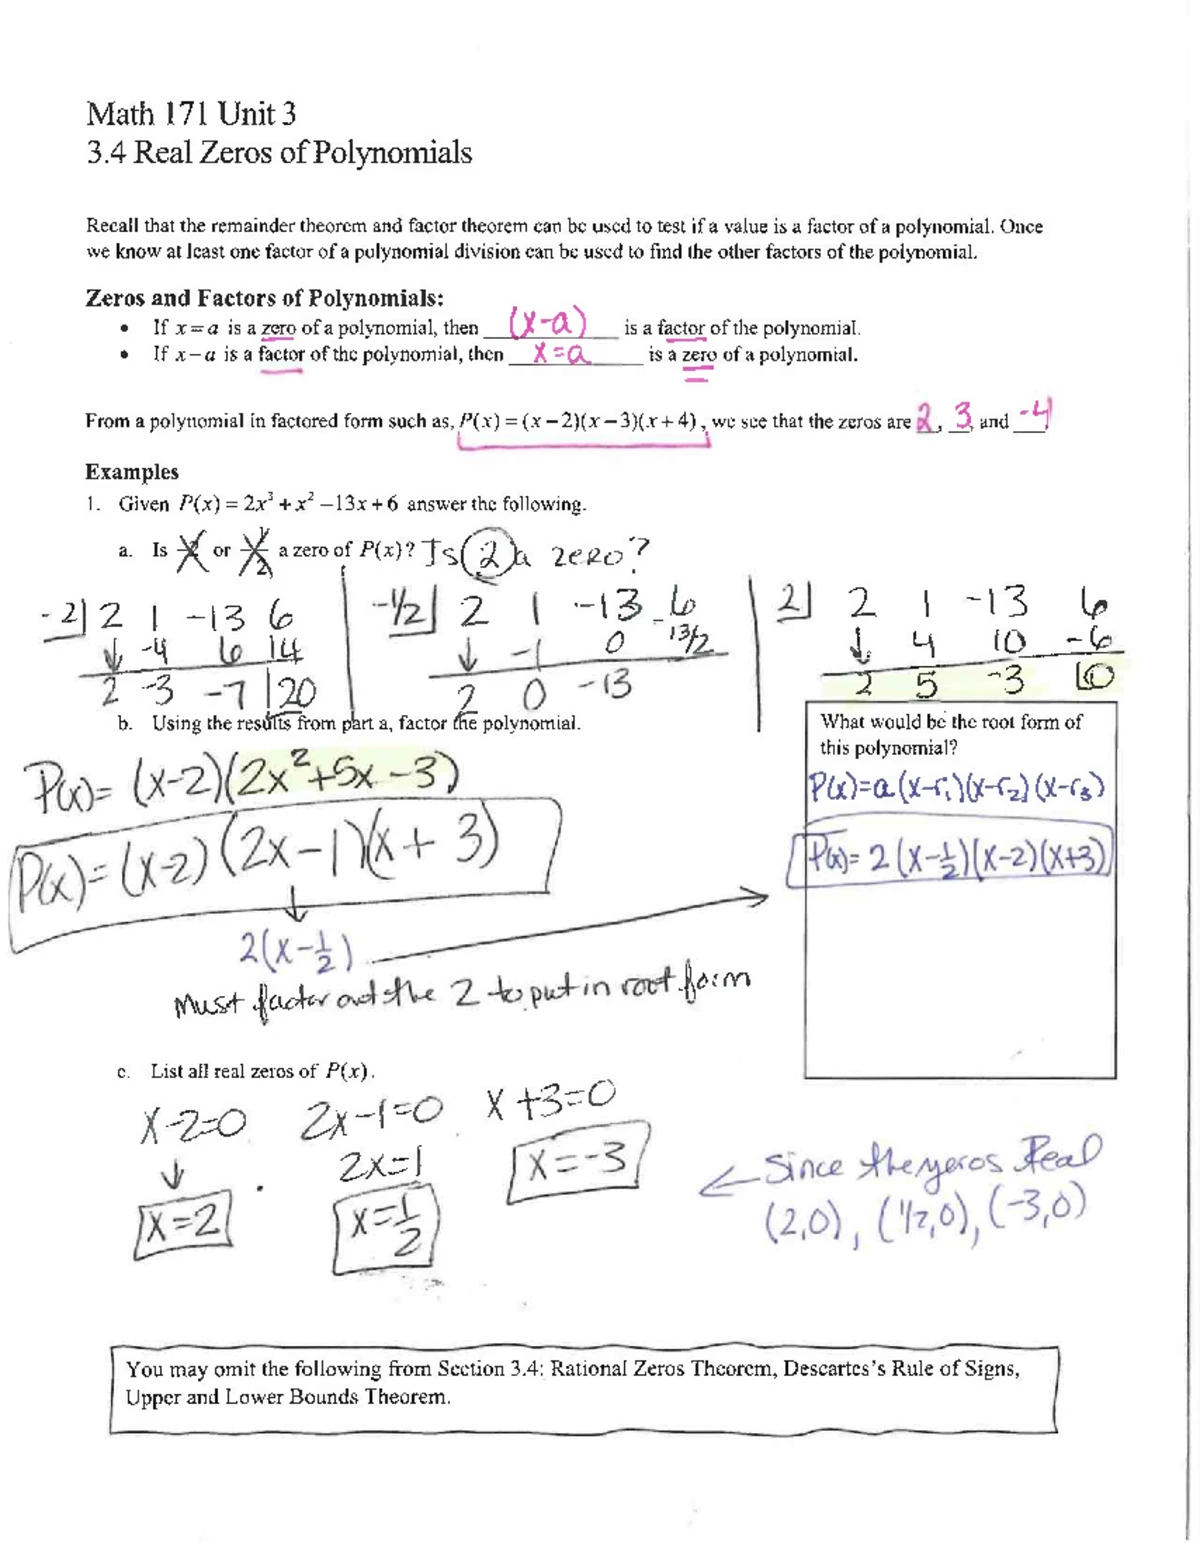 Math 171 Unit 3
3.4 Real Zeros of Polynomials
Recall that the remainder theorem and factor theorem can be used to test if a value is a factor of a polynomial. Once
we know at least one factor of a polynomial division can be used to find the other factors of the polynomial.
Zeros and Factors of Polynomials:
• If x = a is a zero of a polynomial, then (x-a) is a factor of the polynomial.
• If x − a is a factor of the polynomial, then x=a is a zero of a polynomial.
From a polynomial in factored form such as, P(x) = (x − 2)(x − 3)(x + 4), we see that the zeros are 2, 3, and -4
Examples
1. Given P(x) = 2x³ + x² − 13x + 6 answer the following.
a. Is or a zero of P(x)? Is 2 a zero?
-2| 2 1 -13 6
↓ -4 6 14
2 -3 -7 |20
-1/2| 2 1 -13 6
↓ -1 0 13/2
2 0 -13
2| 2 1 -13 6
↓ 4 10 -6
2 5 -3 |0
b. Using the results from part a, factor the polynomial.
P(x)= (x-2)(2x²+5x-3)
P(x)= (x-2)(2x-1)(x+3)
2(x-1/2)
Must factor out the 2 to put in root form
What would be the root form of
this polynomial?
P(x)=a(x-r₁)(x-r₂)(x-r₃)
P(x)= 2(x-1/2)(x-2)(x+3)
c. List all real zeros of P(x).
x-2=0 2x-1=0 x+3=0
2x=1 x=-3
x=2 x=1/2
← Since the zeros Real
(2,0), (1/2,0), (-3,0)
You may omit the following from Section 3.4: Rational Zeros Theorem, Descartes’s Rule of Signs,
Upper and Lower Bounds Theorem.